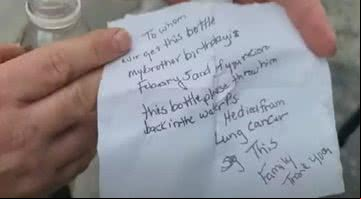 To whom
ever get this bottle
my brother birthday is
Febuary 5 and if you
this bottle please throw him
back in the water
He died from
Lung cancer
This
Family
Thank you